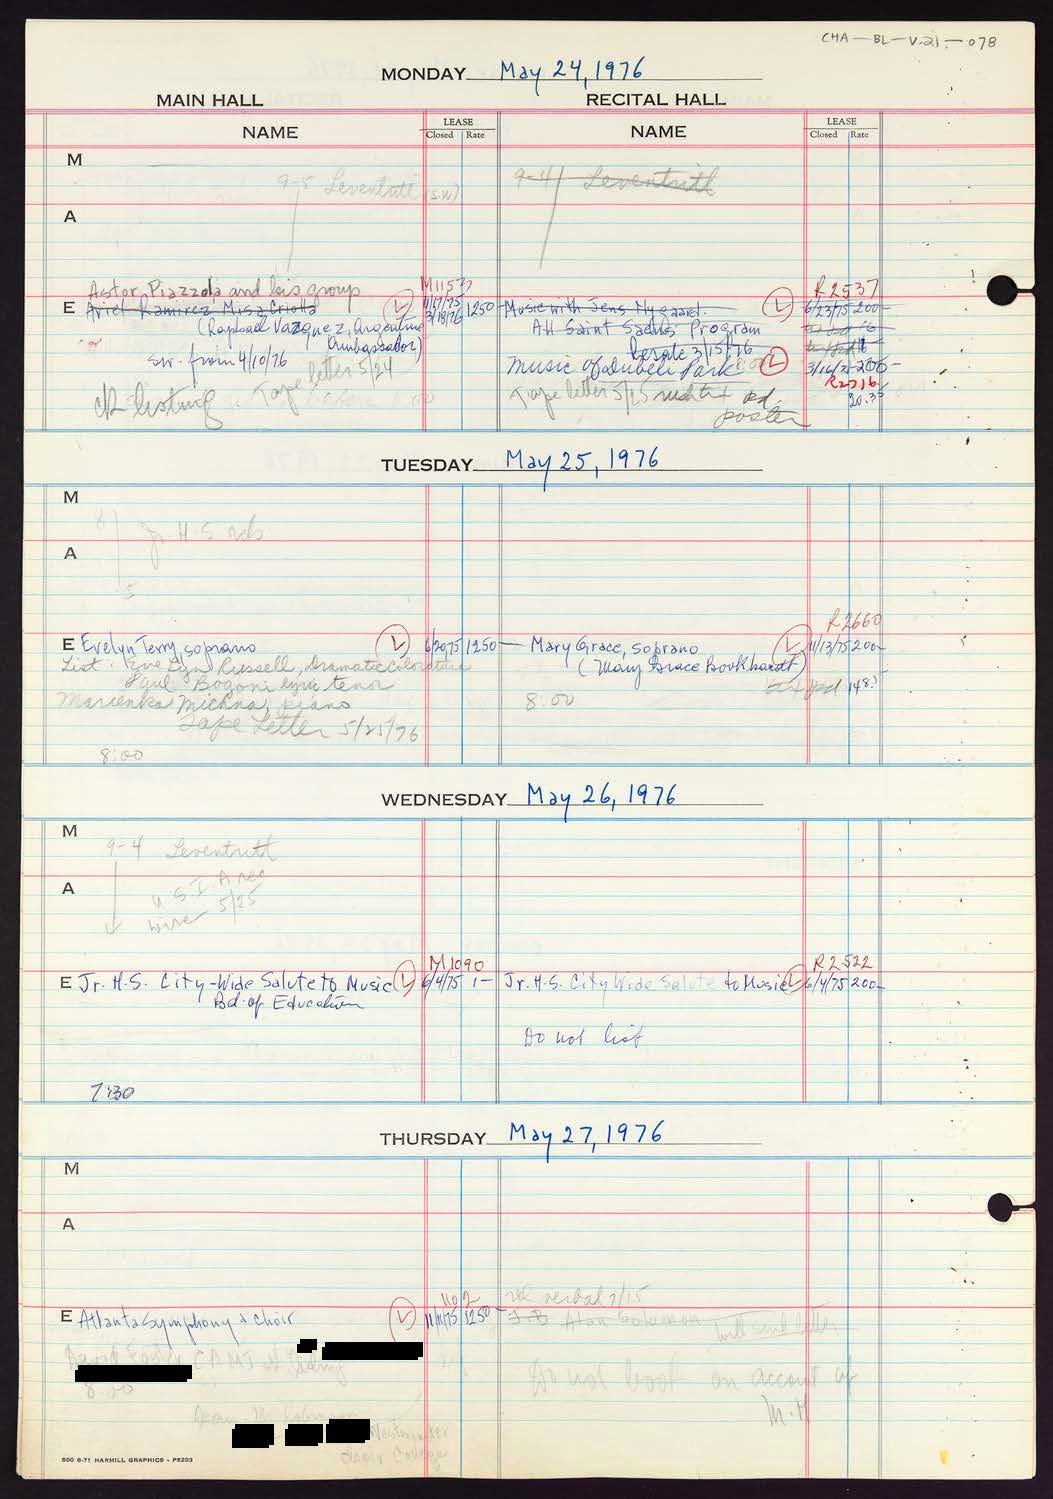 CHA-BL-V.21-078
MONDAY May 24, 1976
MAIN HALL RECITAL HALL
NAME LEASE Closed Rate NAME LEASE Closed Rate
M
9-5 Leventritt (S.W) 9-4 Leventritt
A
Astor Piazzola and his group M1157 R2537
E Ariel Ramirez Misa Criolla L 11/17/75 1250 Music with Jens Nygaard. L 6/23/75 200-
3/18/76
(Raphael Vazquez, Argentine All Saint Saens Program
Ambassador) besale 3/15/76
sur. from 4/10/76 Music of Dubeli Park L 3/16/7 200-
Tape letter 5/24 R2716
ck listing Tape letter 5/25 pd. 20.35
poster
TUESDAY May 25, 1976
M
8 Jr. H.S reh
A
5
R2660
E Evelyn Terry, soprano L 6/20/75 1250- Mary Grace, soprano L 11/13/75 200-
List: Evelyn Russell, dramatic coloratura (Mary Grace Bookhardt)
Paul Bogoni lyric tenor pd 148.
Marienka Michna, piano 8:00
Tape Letter 5/25/76
8:00
WEDNESDAY May 26, 1976
M
9-4 Leventritt
A
U.S.I.A rec
wire 5/25
M1090 R2522
E Jr. H.S. City-Wide Salute to Music L 6/4/75 1- Jr. H.S. City Wide Salute to Music L 6/4/75 200-
Bd. of Education
Do not list
7:30
THURSDAY May 27, 1976
M
A
1102 verbal 7/15
E Atlanta Symphony & Choir L 11/11/75 1250- Alan Solomon will send letter
David Foster CAMI
8:00 Do not book on account of
M.H
Westminster
Choir College
500 6-71 HARMILL GRAPHICS - P5203